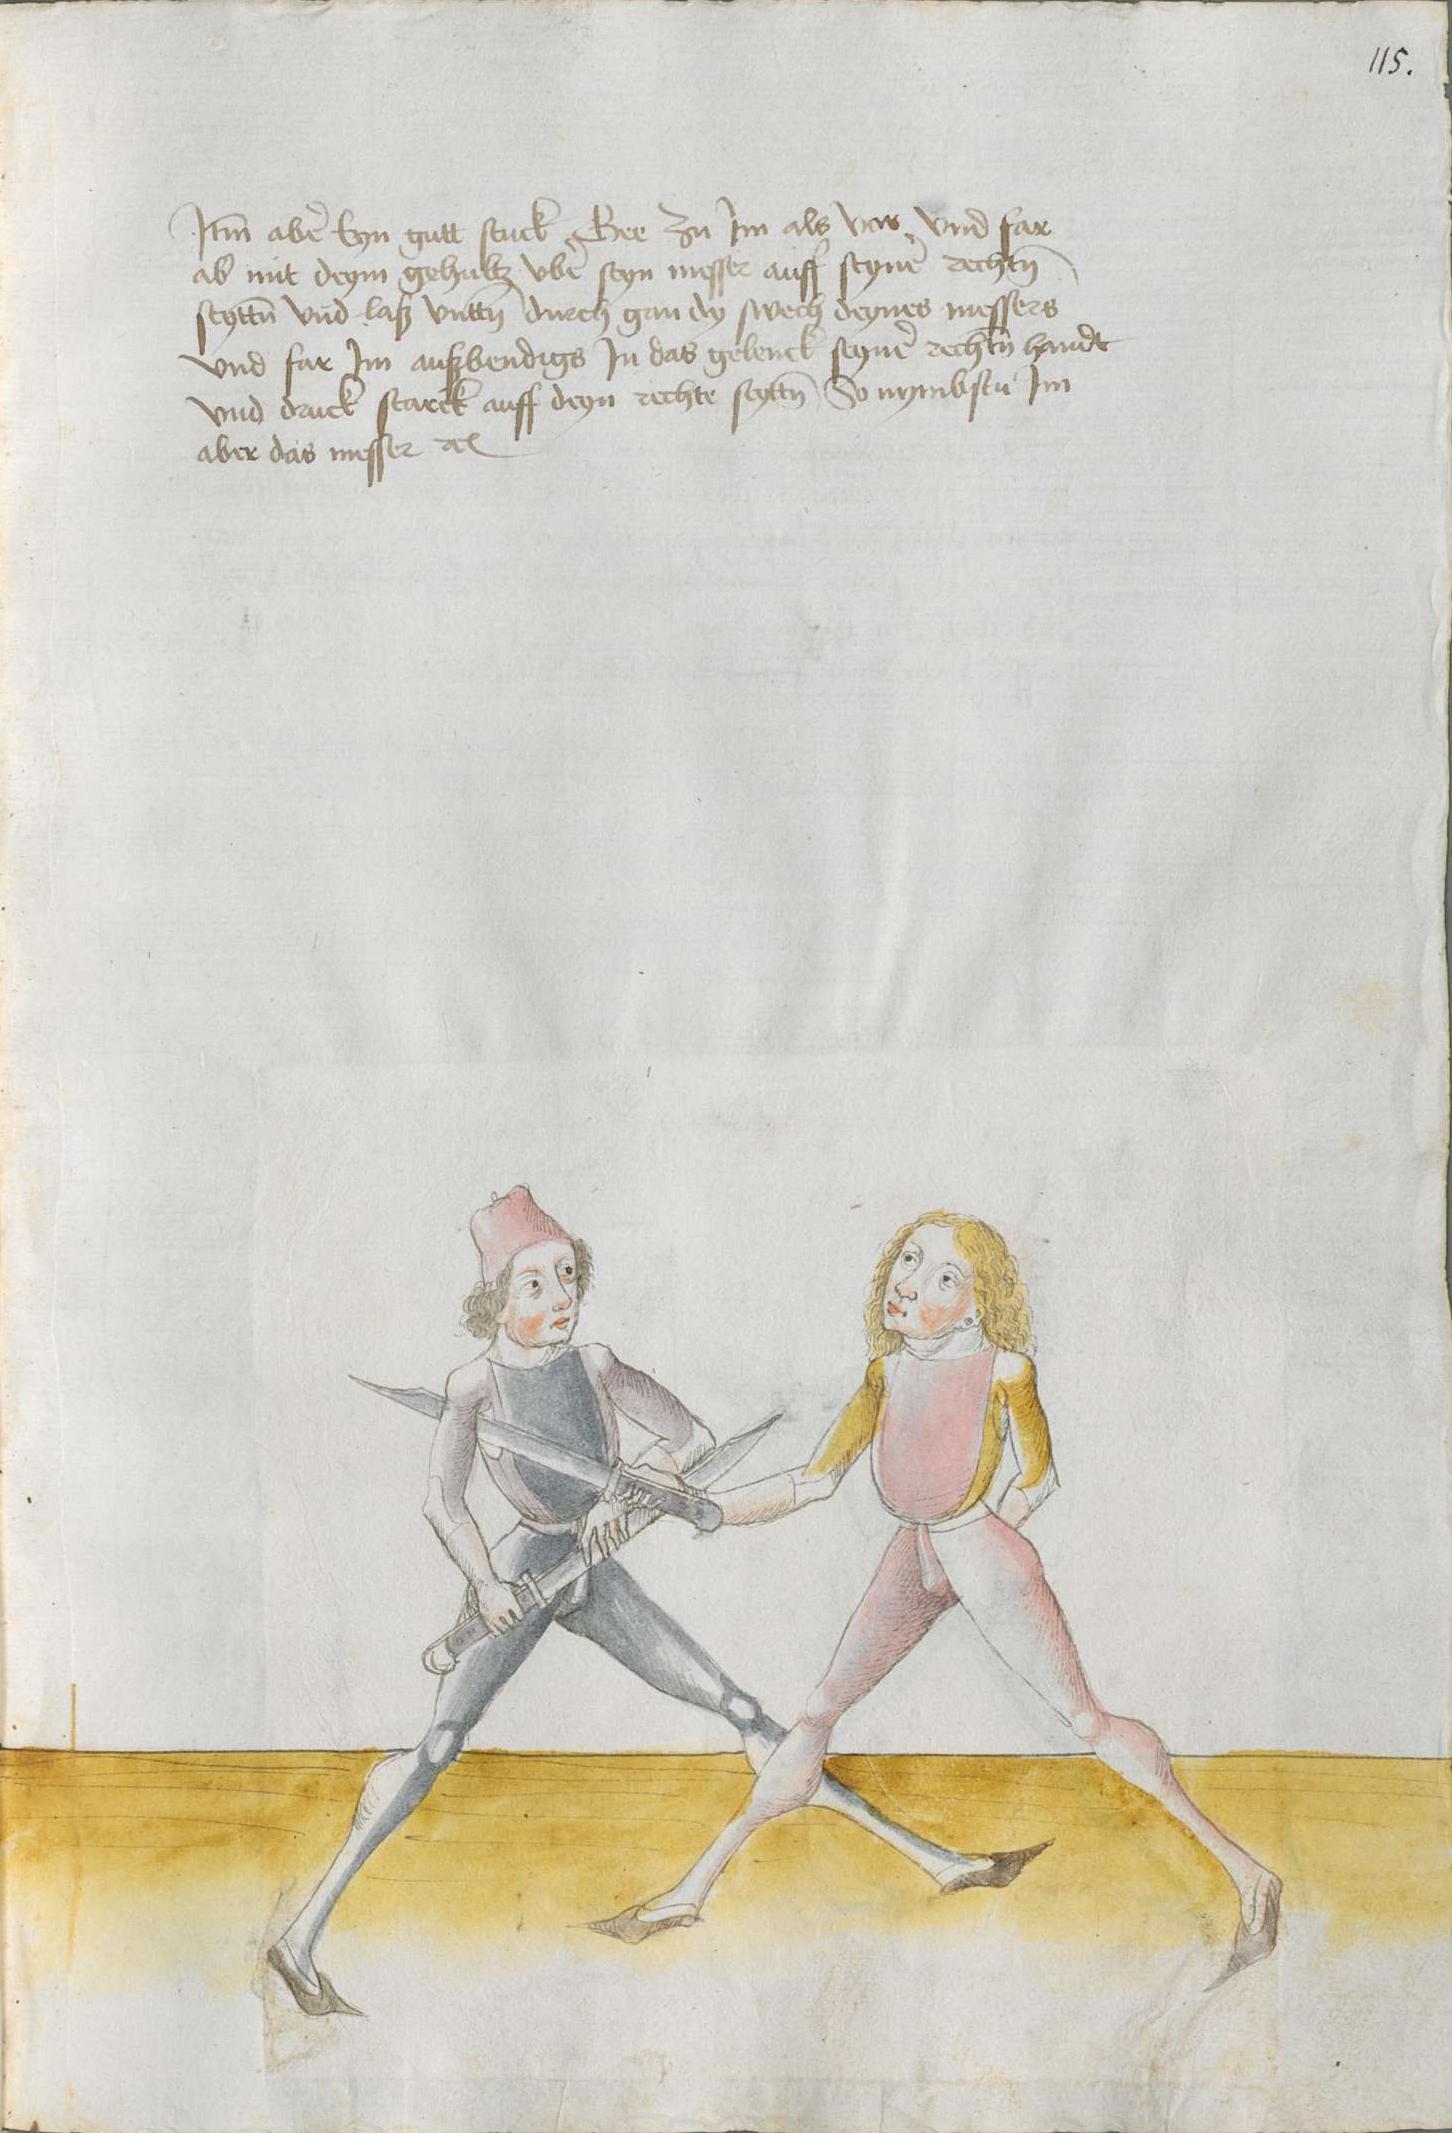 115.
Jtm̄ aber̄ Eyn gutt stuck Gee zu Im als vor, vnd far
ab mit deym gehultz vber̄ seyn messer auff seyner̄ rechtn̄
seyttn̄ vnd laß vnttn̄ durch gan dy swech deynes messers
vnd far Im außbendigs In das gelenck seyner̄ rechtn̄ handt
vnd druck starck auff deyn rechte seyttn̄ So nymbstu Im
aber das messer ꝛc